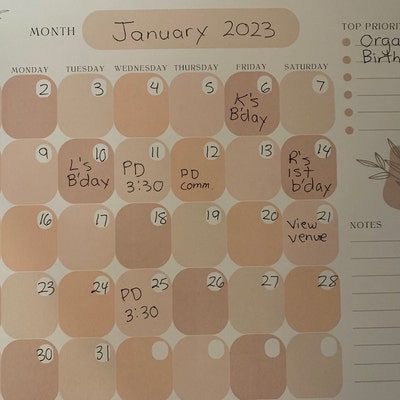 MONTH January 2023
TOP PRIORIT
Orga
Birth
MONDAY TUESDAY WEDNESDAY THURSDAY FRIDAY SATURDAY
2 3 4 5 6 7
K's
B'day
9 10 11 12 13 14
L's
B'day
PD
3:30
PD
comm.
R's
1st
b'day
16 17 18 19 20 21
View
venue
NOTES
23 24 25 26 27 28
PD
3:30
30 31